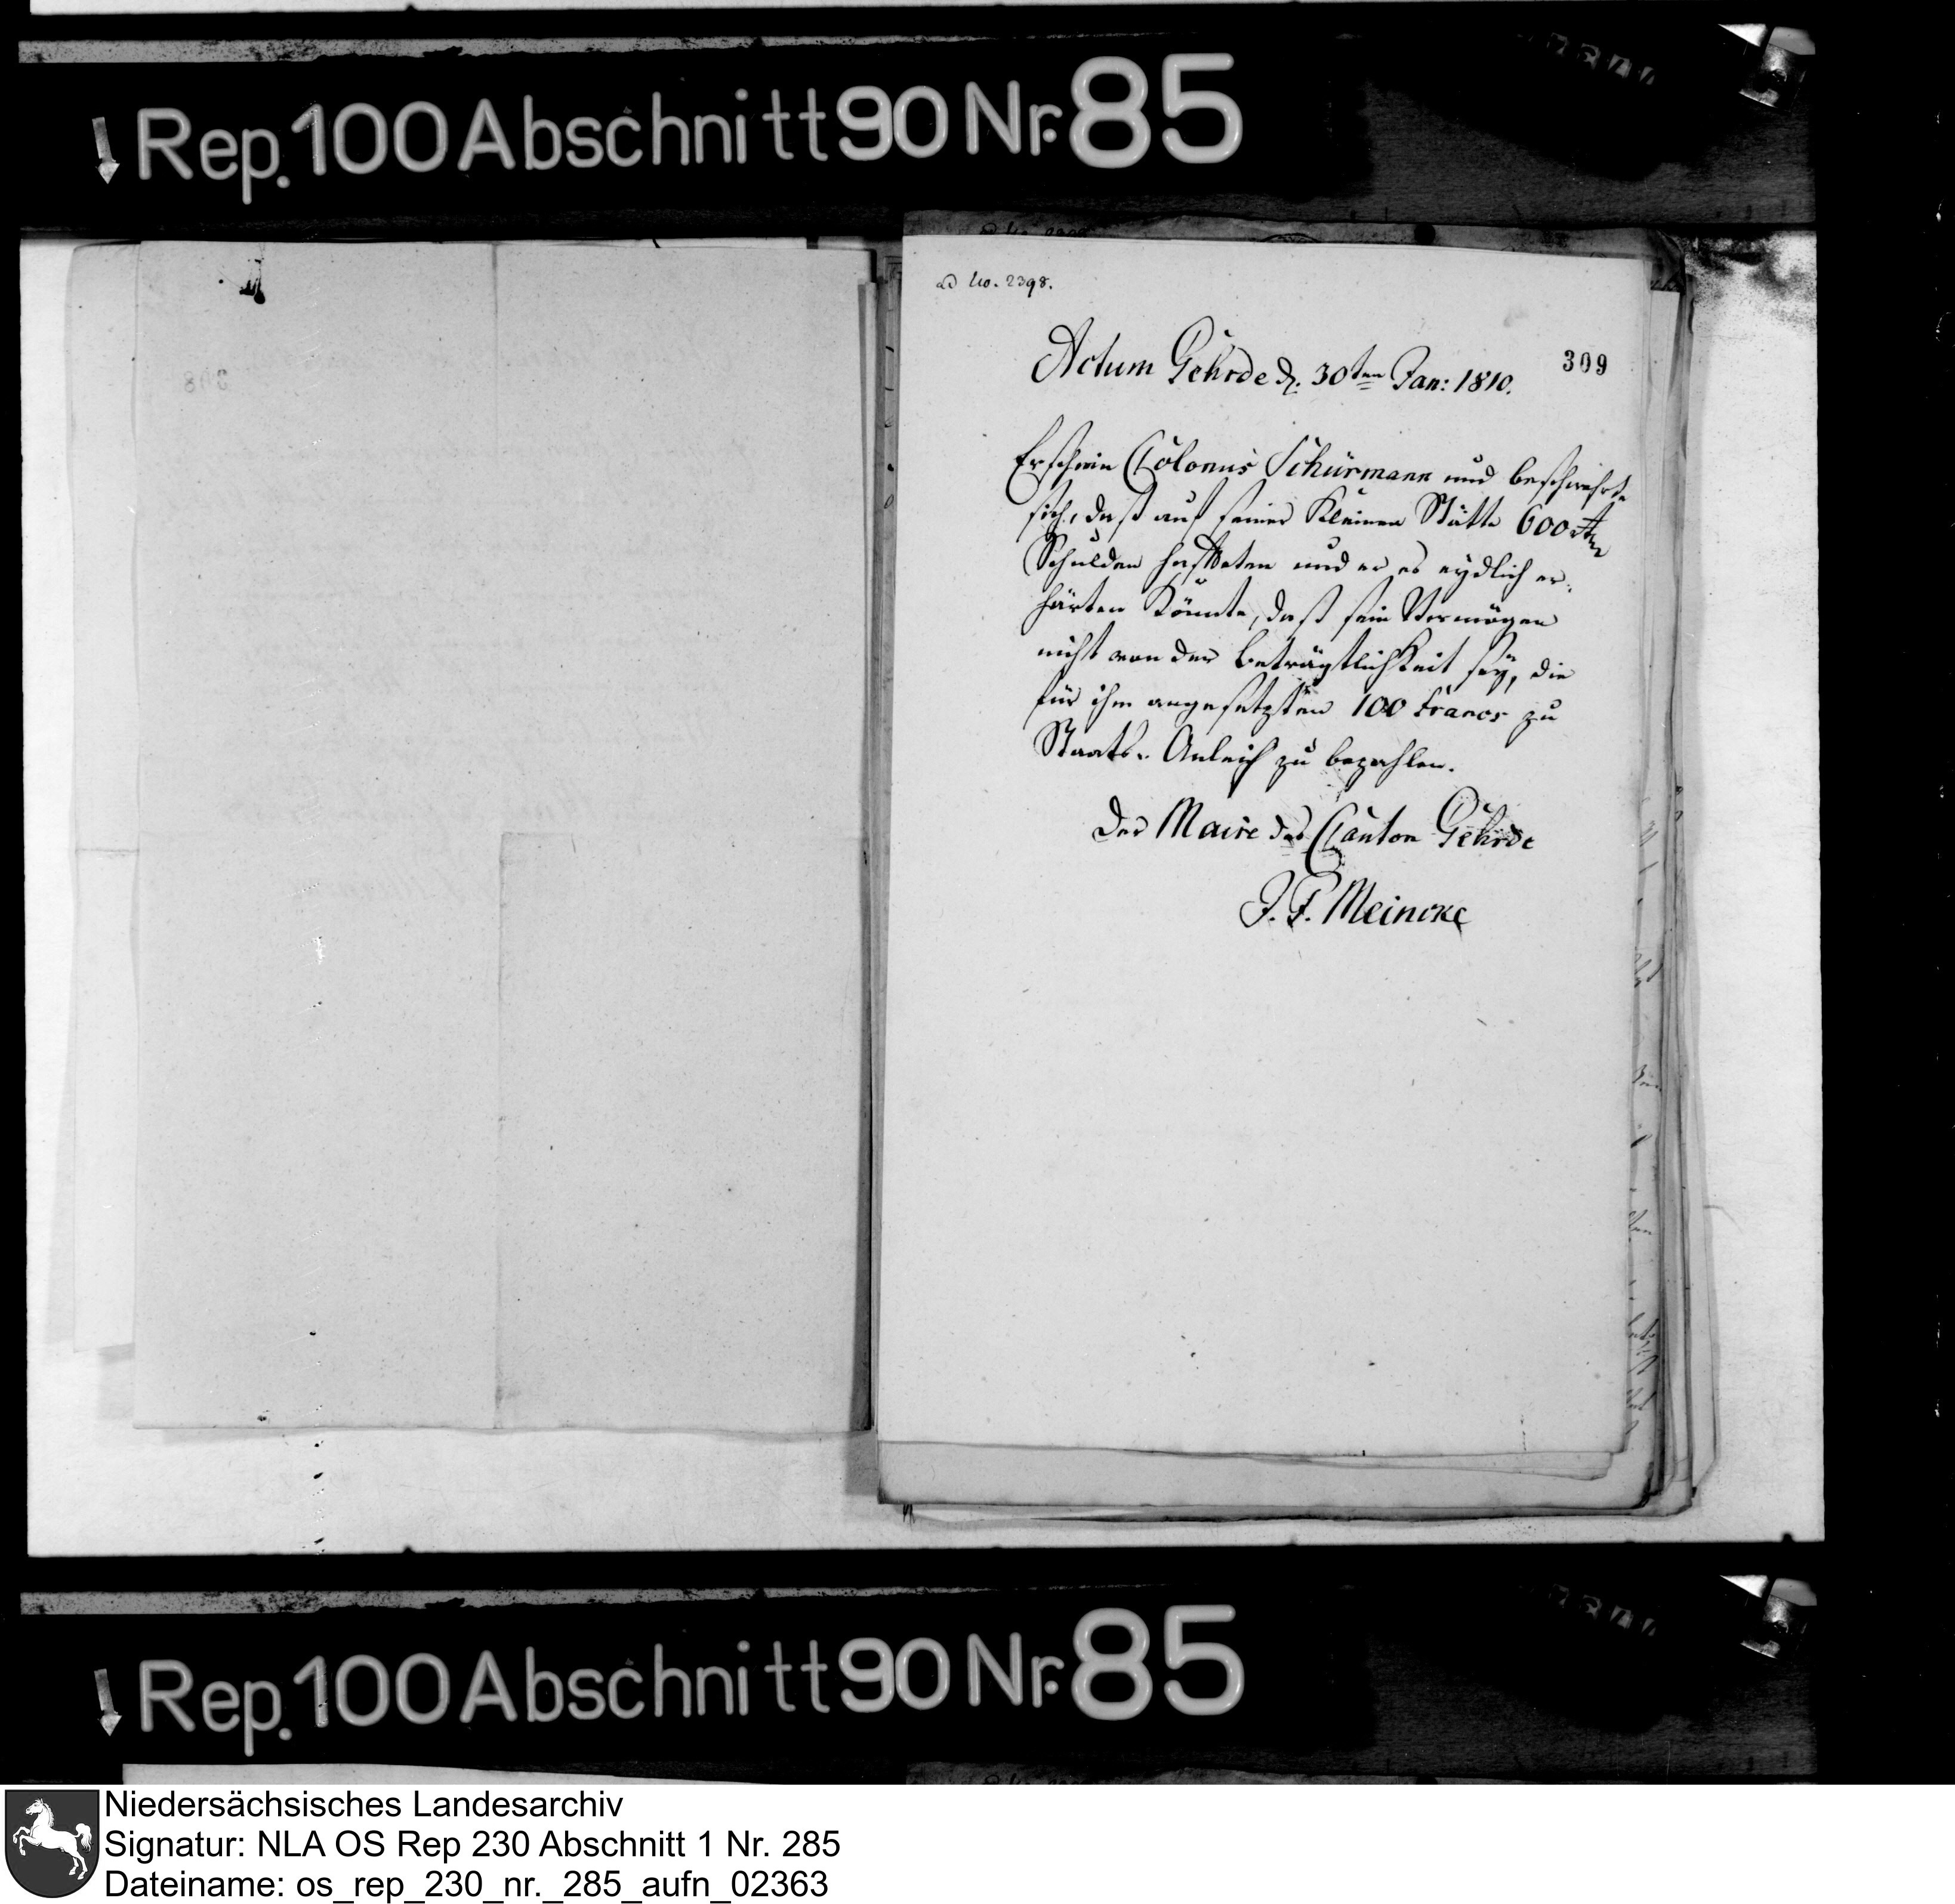 Rep. 100 Abschnitt 90 Nr. 85
ad No. 2398.
309
Actum Gehrde d. 30ten Jan: 1810.
Erschein Colonus Schürmann und beschwehrte
sich, daß auf seiner Kleinen Stätte 600 rthlr
Schulden hafteten und er es eydlich er-
härten könnte, daß sein Vermögen
nicht von der beträgtlichkeit sey, die
für ihm angesetzten 100 Francs zu
Staats-Anleih zu bezahlen.
Der Maire des Canton Gehrde
J. F. Meincke
308
Rep. 100 Abschnitt 90 Nr. 85
Niedersächsisches Landesarchiv
Signatur: NLA OS Rep 230 Abschnitt 1 Nr. 285
Dateiname: os_rep_230_nr._285_aufn_02363